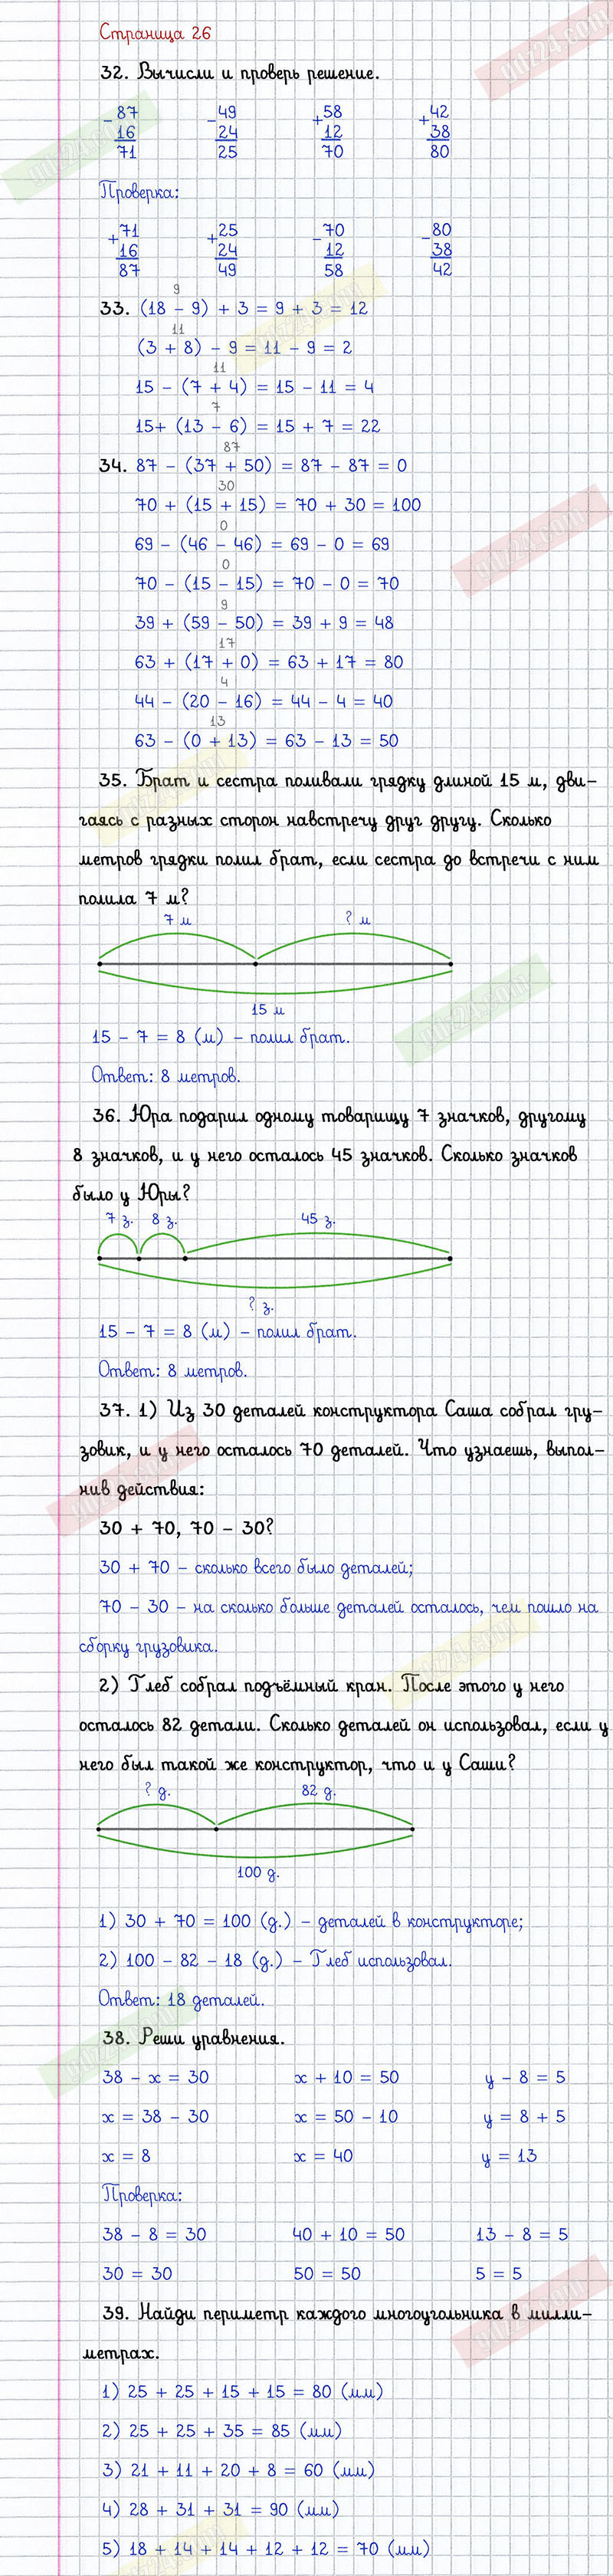 Страница 26
32. Вычисли и проверь решение.
− 87 − 49 + 58 + 42
16 24 12 38
71 25 70 80
Проверка:
+ 71 + 25 − 70 − 80
16 24 12 38
87 49 58 42
9
33. (18 − 9) + 3 = 9 + 3 = 12
11
(3 + 8) − 9 = 11 − 9 = 2
11
15 − (7 + 4) = 15 − 11 = 4
7
15+ (13 − 6) = 15 + 7 = 22
87
34. 87 − (37 + 50) = 87 − 87 = 0
30
70 + (15 + 15) = 70 + 30 = 100
0
69 − (46 − 46) = 69 − 0 = 69
0
70 − (15 − 15) = 70 − 0 = 70
9
39 + (59 − 50) = 39 + 9 = 48
17
63 + (17 + 0) = 63 + 17 = 80
4
44 − (20 − 16) = 44 − 4 = 40
13
63 − (0 + 13) = 63 − 13 = 50
35. Брат и сестра поливали грядку длиной 15 м, дви-
гаясь с разных сторон навстречу друг другу. Сколько
метров грядки полил брат, если сестра до встречи с ним
полила 7 м?
7 м ? м
15 м
15 − 7 = 8 (м) − полил брат.
Ответ: 8 метров.
36. Юра подарил одному товарищу 7 значков, другому
8 значков, и у него осталось 45 значков. Сколько значков
было у Юры?
7 з. 8 з. 45 з.
? з.
15 − 7 = 8 (м) − полил брат.
Ответ: 8 метров.
37. 1) Из 30 деталей конструктора Саша собрал гру-
зовик, и у него осталось 70 деталей. Что узнаешь, выпол-
нив действия:
30 + 70, 70 − 30?
30 + 70 − сколько всего было деталей;
70 − 30 − на сколько больше деталей осталось, чем пошло на
сборку грузовика.
2) Глеб собрал подъёмный кран. После этого у него
осталось 82 детали. Сколько деталей он использовал, если у
него был такой же конструктор, что и у Саши?
? д. 82 д.
100 д.
1) 30 + 70 = 100 (д.) − деталей в конструкторе;
2) 100 − 82 − 18 (д.) − Глеб использовал.
Ответ: 18 деталей.
38. Реши уравнения.
38 − х = 30 х + 10 = 50 у − 8 = 5
х = 38 − 30 х = 50 − 10 у = 8 + 5
х = 8 х = 40 у = 13
Проверка:
38 − 8 = 30 40 + 10 = 50 13 − 8 = 5
30 = 30 50 = 50 5 = 5
39. Найди периметр каждого многоугольника в милли-
метрах.
1) 25 + 25 + 15 + 15 = 80 (мм)
2) 25 + 25 + 35 = 85 (мм)
3) 21 + 11 + 20 + 8 = 60 (мм)
4) 28 + 31 + 31 = 90 (мм)
5) 18 + 14 + 14 + 12 + 12 = 70 (мм)